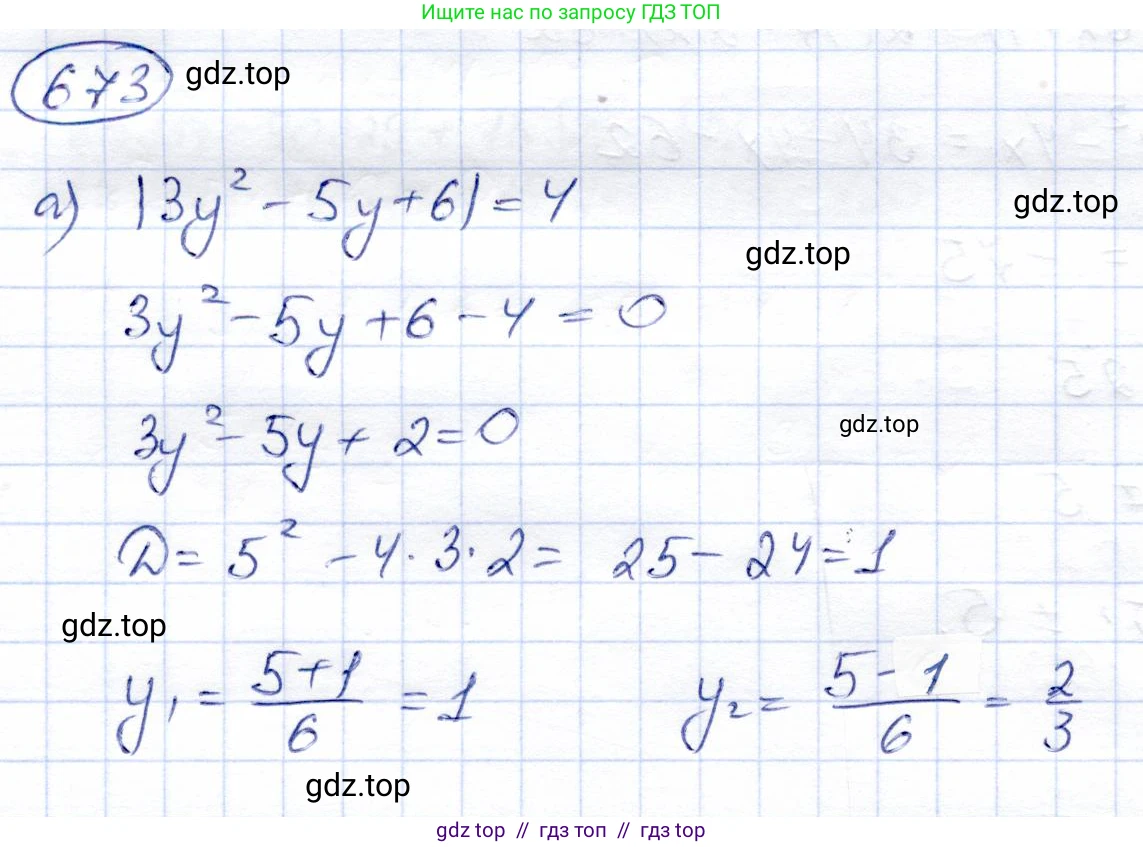 Ищите нас по запросу ГДЗ ТОП
673 gdz.top
а) |3y² - 5y + 6| = 4
gdz.top
gdz.top
3y² - 5y + 6 - 4 = 0
3y² - 5y + 2 = 0
gdz.top
D = 5² - 4 · 3 · 2 = 25 - 24 = 1
gdz.top
y₁ = (5+1)/6 = 1 y₂ = (5-1)/6 = 2/3
gdz.top
gdz top // гдз топ // гдз top